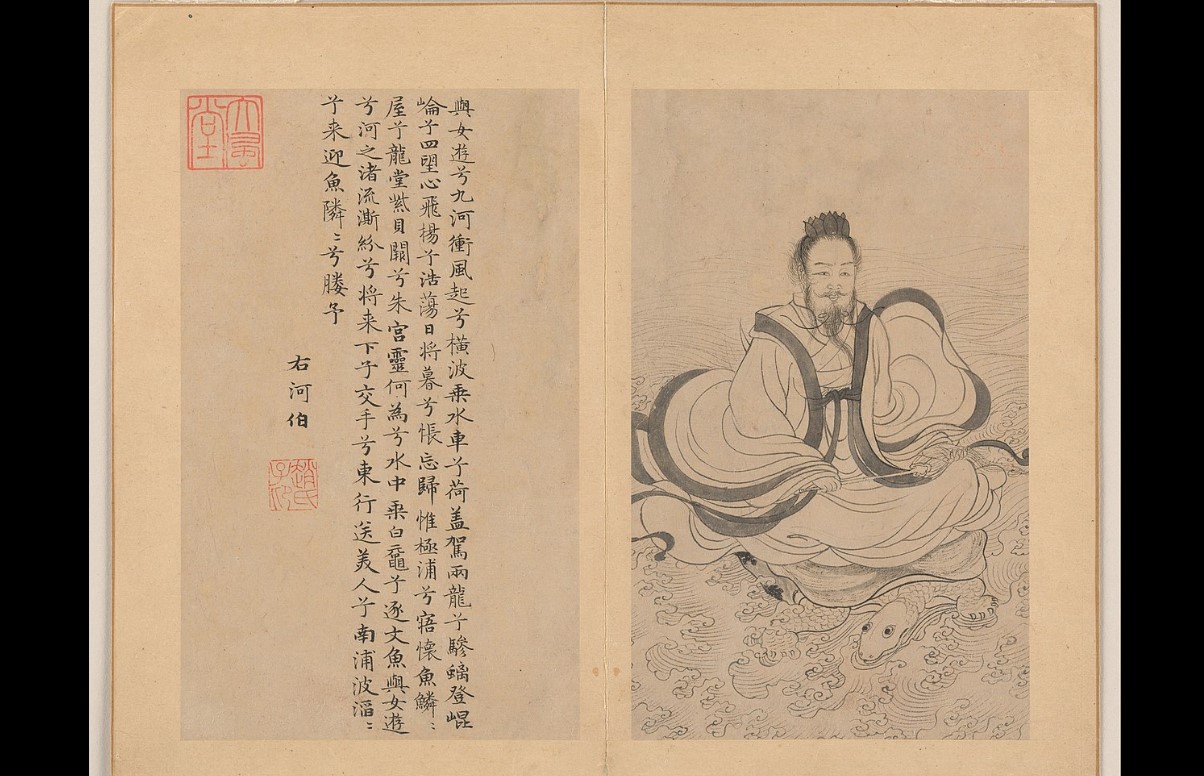 與女遊兮九河衝風起兮橫波乗水車兮荷盖駕兩龍兮驂螭登崐
崘兮四望心飛楊兮浩蕩日将暮兮悵忘歸惟極浦兮寤懷魚鱗〻
屋兮龍堂紫貝闕兮朱宮靈何為兮水中乗白黿兮逐文魚與女遊
兮河之渚流澌紛兮将来下子交手兮東行送美人兮南浦波滔〻
兮来迎魚隣〻兮媵予
右河伯
趙氏子昂
大風堂